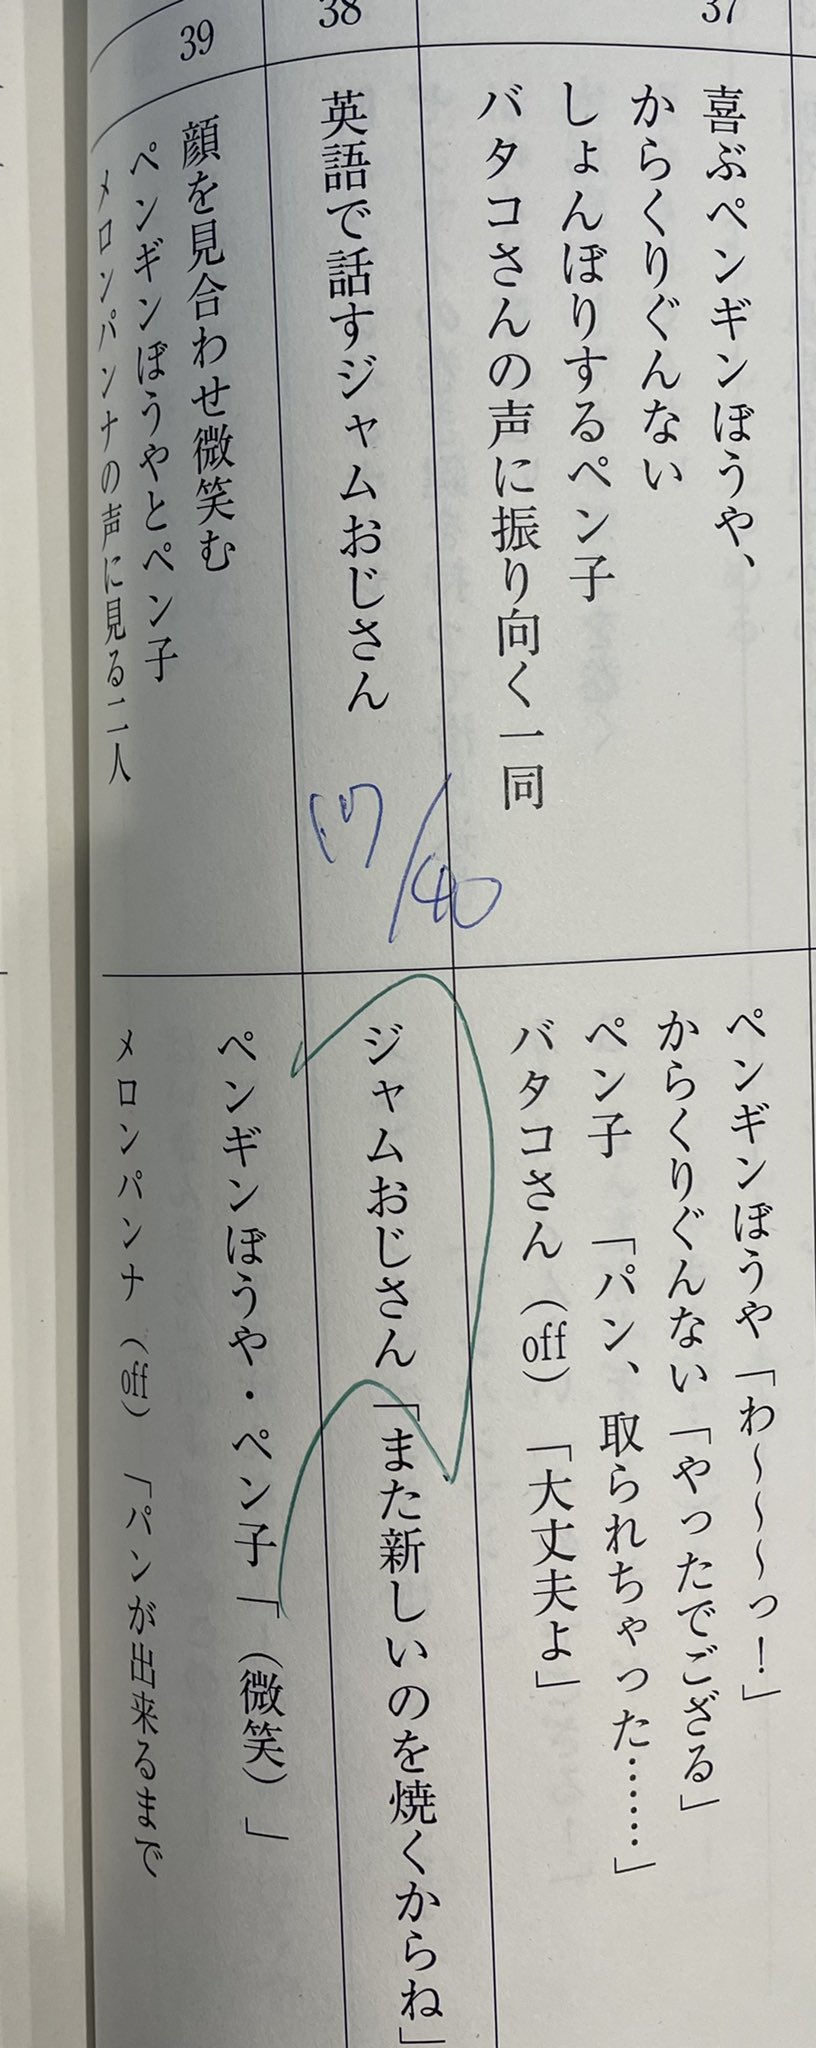 37
喜ぶペンギンぼうや、
からくりぐんない
しょんぼりするペン子
バタコさんの声に振り向く一同
ペンギンぼうや「わ〜〜〜っ！」
からくりぐんない「やったでござる」
ペン子　「パン、取られちゃった……」
バタコさん（off）　「大丈夫よ」
38
英語で話すジャムおじさん
/40
ジャムおじさん「また新しいのを焼くからね」
39
顔を見合わせ微笑む
ペンギンぼうやとペン子
メロンパンナの声に見る二人
ペンギンぼうや・ペン子「（微笑）」
メロンパンナ（off）「パンが出来るまで